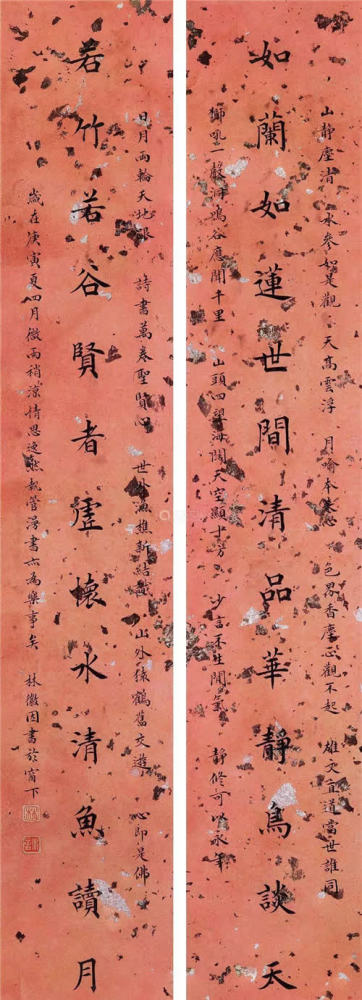 山靜塵清 水參如是觀 天高雲浮 月喻本來心 色界香塵正觀不起 雄文直道當世誰同
如蘭如蓮世間清品華靜鳥談天
獅吼一聲 鳴谷應聞千里 山頭四望海闊天空顯十方 少言不生閒氣 靜修可以永年
日月兩輪天地眼 詩書萬卷聖賢心 世外漁樵新結 山外猿鶴舊交遊 心即是佛
若竹若谷賢者虛懷水清魚讀月
歲在庚寅夏四月微雨稍涼情思逸 執管漫書亦為樂事矣 林徽因書於窗下